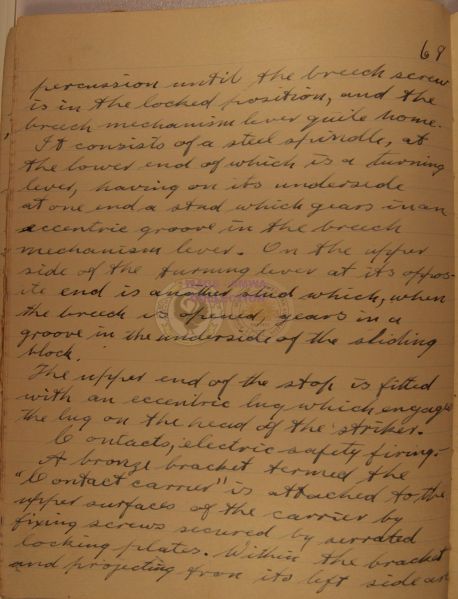 69
percussion until the breech screw
is in the locked position, and the
breech mechanism lever quite home.
It consists of a steel spindle, at
the lower end of which is a turning
lever, having on its underside
at one end a stud which gears in an
eccentric groove in the breech
mechanism lever. On the upper
side of the turning lever at its oppos-
ite end is another stud which, when
the breech is opened, gears in a
groove in the underside of the sliding
block.
The upper end of the stop is fitted
with an eccentric lug which engages
the lug on the head of the striker.
Contacts, electric safety firing.-
A bronze bracket termed the
"Contact carrier" is attached to the
upper surfaces of the carrier by
fixing screws secured by serrated
locking plates. Within the bracket
and projecting from its left side are